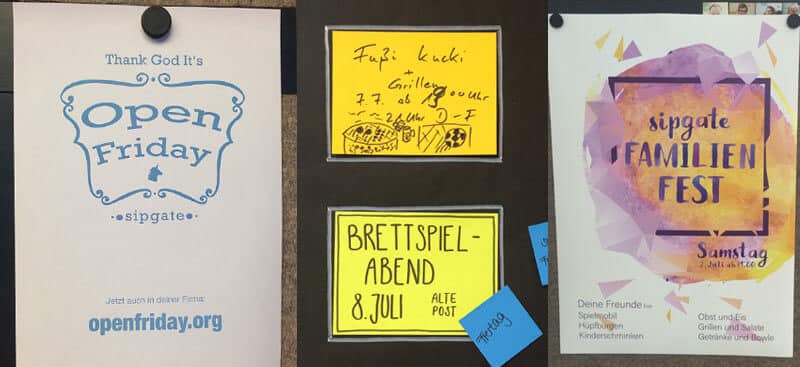 Thank God It's
Open
Friday
sipgate
Jetzt auch in deiner Firma:
openfriday.org
Fußi kucki
+
Grillen
7.7. ab 19:00 Uhr
21 Uhr D-F
BRETTSPIEL-
ABEND
8. JULI ALTE
POST
Freitag
sipgate
FAMILIEN
FEST
Samstag
2. Juli ab 11:00
Deine Freunde
Spielmobil
Hüpfburgen
Kinderschminken
Obst und Eis
Grillen und Salate
Getränke und Bowle